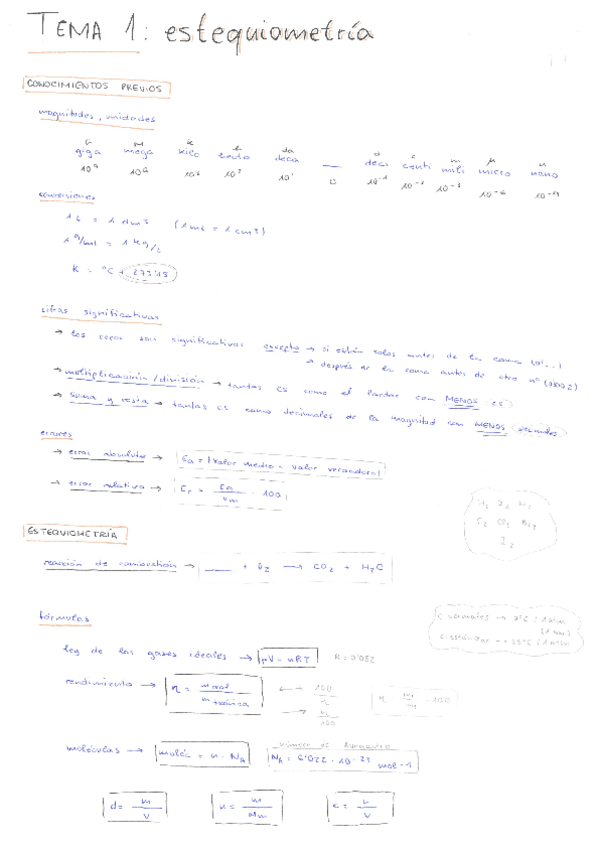 TEMA 1: estequiometría
CONOCIMIENTOS PREVIOS
magnitudes, unidades
G M k h da d c m μ n
giga mega kilo hecto deca — deci centi mili micro nano
10⁹ 10⁶ 10³ 10² 10¹ 0 10⁻¹ 10⁻² 10⁻³ 10⁻⁶ 10⁻⁹
conversiones
1L = 1 dm³ (1mL = 1cm³)
1 g/ml = 1 kg/L
K = ºC + 273'15
cifras significativas
→ los ceros son significativos excepto → si están solos antes de la coma (0'...)
→ después de la coma antes de otro nº (0'002)
→ multiplicación/división → tantas cs como el factor con MENOS cs
→ suma y resta → tantas cs como decimales de la magnitud con MENOS decimales
errores
→ error absoluto → Ea = |valor medio - valor verdadero|
→ error relativo → Er = Ea / Vm · 100
ESTEQUIOMETRÍA
reacción de combustión → ___ + O₂ → CO₂ + H₂O
I₂
fórmulas
c normales → 0ºC / 1 atm
→ 25ºC / 1 atm
ley de los gases ideales → pV = nRT R = 0'082
rendimiento → η = m real / m teórica
moléculas → moléc = n · NA
número de Avogadro
NA = 6'022 · 10^23 mol-1
d = m / V
n = m / Mm
c = n / V